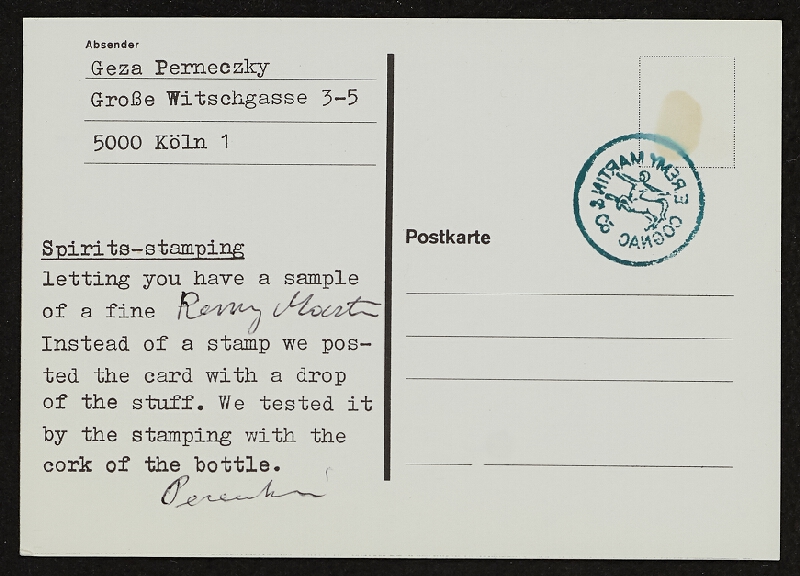 Absender
Geza Perneczky
Große Witschgasse 3-5
5000 Köln 1
Spirits-stamping
letting you have a sample
of a fine Remy Martin
Instead of a stamp we pos-
ted the card with a drop
of the stuff. We tested it
by the stamping with the
cork of the bottle.
Postkarte
E REMY MARTIN & Co
COGNAC